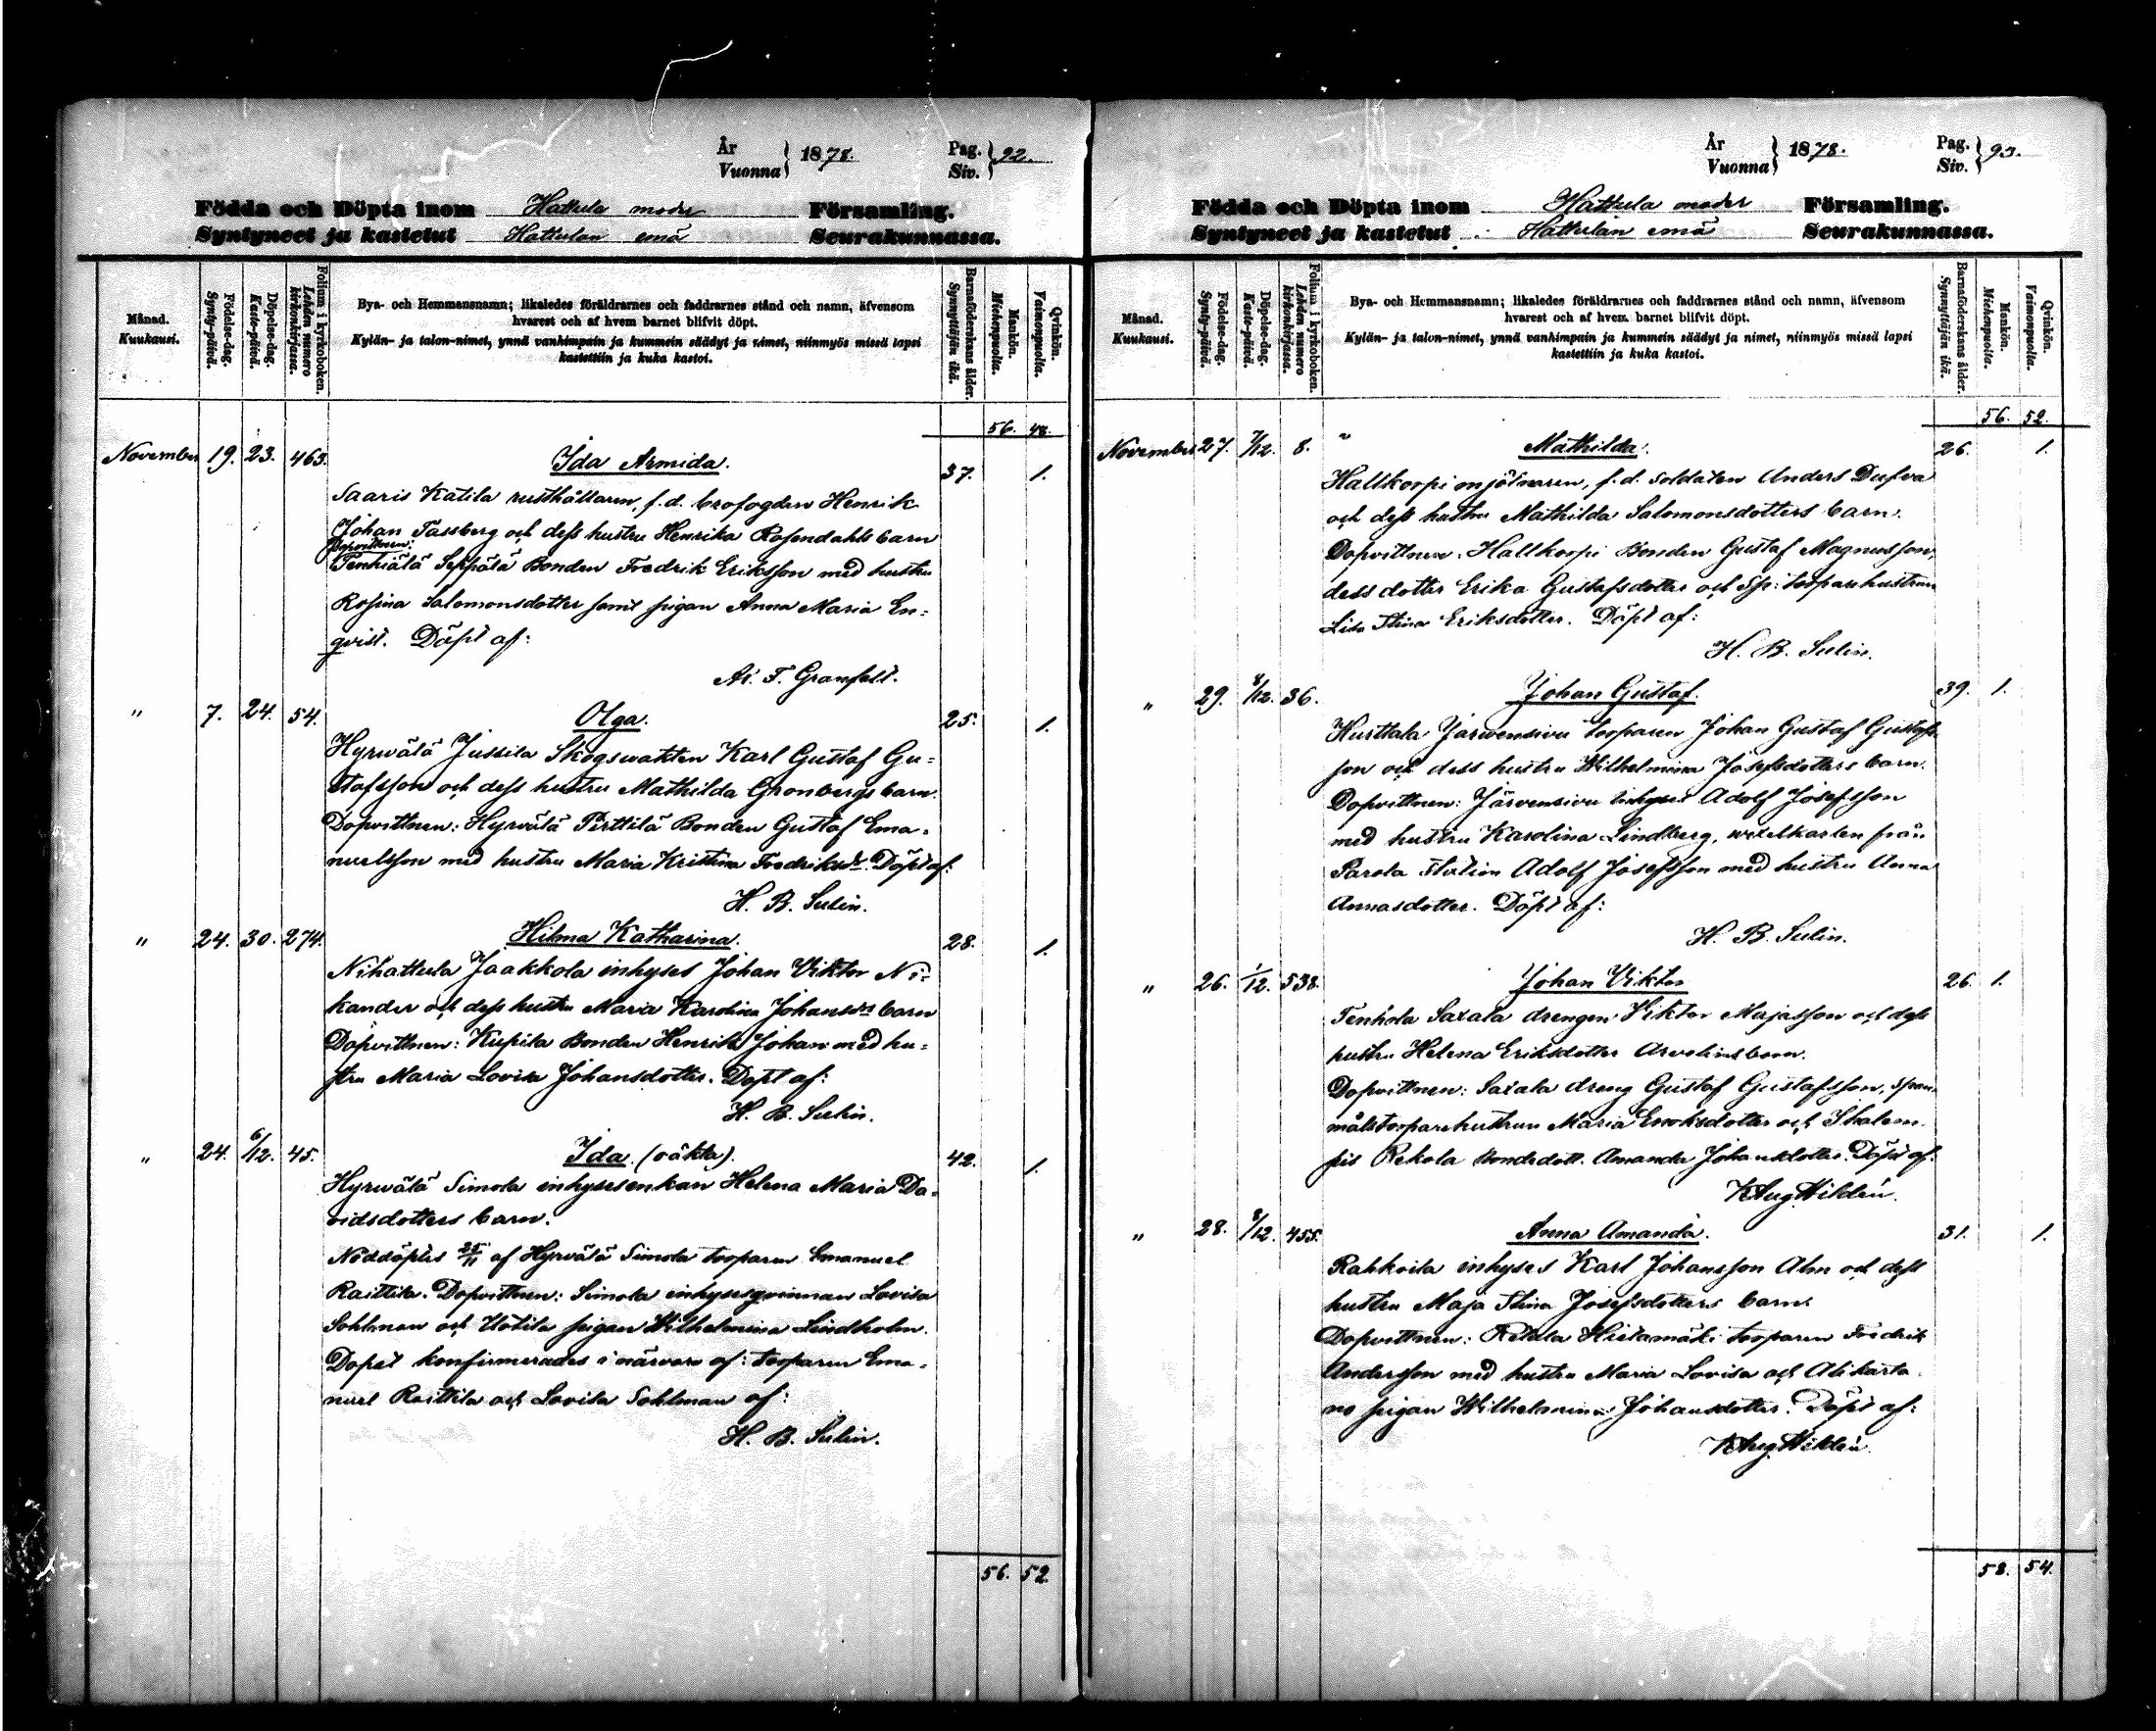 År
Vuonna } 1878.
Pag.
Siv. } 92.
Födda och Döpta inom Hattula moder Församling.
Syntyneet ja kastetut Hattulan emä Seurakunnassa.
Månad.
Kuukausi.
Födelse-dag.
Synty-päivä.
Döpelse-dag.
Kaste-päivä.
Folium i kyrkoboken.
Lehden numero
kirkonkirjassa.
Bya- och Hemmansnamn; likaledes föräldrarnes och faddrarnes stånd och namn, äfvensom
hvarest och af hvem barnet blifvit döpt.
Kylän- ja talon-nimet, ynnä vanhimpain ja kummein säädyt ja nimet, niinmyös missä lapsi
kastettiin ja kuka kastoi.
Barnaföderskans ålder.
Synnyttäjän ikä.
Mankön.
Miehenpuolta.
Qvinkön.
Vaimonpuolta.
56. 48.
November 19. 23. 463. Ida Armida. 37. 1.
Saaris Katila rusthållaren, f.d. brofogden Henrik
Johan Tassberg och dess hustru Henrika Rosendahls barn
Dopvittnen:
Tenhiälä Seppälä Bonden Fredrik Eriksson med hustru
Rosina Salomonsdotter samt pigan Anna Maria En=
qvist. Döpt af:
Ar. F. Granfelt.
" 7. 24. 54. Olga. 25. 1.
Hyrwälä Jussila Skogswakten Karl Gustaf Gu=
stafsson och dess hustru Mathilda Gronbergs barn.
Dopvittnen: Hyrvälä Perttilä Bonden Gustaf Ema=
nuelsson med hustru Maria Kristina Fredriksdr. Döpt af:
H. B. Sulin.
" 24. 30. 274. Hilma Katharina. 28. 1.
Nihattula Jaakkola inhyses Johan Viktor Ni=
kander och dess hustru Maria Karolina Johansdrs barn
Dopvittnen: Kupila Bonden Henrik Johan med hu=
stru Maria Lovisa Johansdotter. Döpt af:
H. B. Sulin.
" 24. 6/12. 45. Ida. (oäkta). 42. 1.
Hyrwälä Simola inhysesenkan Helena Maria Da=
vidsdotters barn.
Nöddöptes 25/11 af Hyrvälä Simola torparen Emanuel
Raittila. Dopvittnen: Simola inhysesqvinnan Lovisa
Sohlman och Uotila pigan Wilhelmina Lindholm.
Dopet konfirmerades i närvaro af: torparen Ema=
nuel Raittila och Lovisa Sohlman af:
H. B. Sulin.
56. 52.
År
Vuonna } 1878.
Pag.
Siv. } 93.
Födda och Döpta inom Hattula moder Församling.
Syntyneet ja kastetut Hattulan emä Seurakunnassa.
Månad.
Kuukausi.
Födelse-dag.
Synty-päivä.
Döpelse-dag.
Kaste-päivä.
Folium i kyrkoboken.
Lehden numero
kirkonkirjassa.
Bya- och Hemmansnamn; likaledes föräldrarnes och faddrarnes stånd och namn, äfvensom
hvarest och af hvem barnet blifvit döpt.
Kylän- ja talon-nimet, ynnä vanhimpain ja kummein säädyt ja nimet, niinmyös missä lapsi
kastettiin ja kuka kastoi.
Barnaföderskans ålder.
Synnyttäjän ikä.
Mankön.
Miehenpuolta.
Qvinkön.
Vaimonpuolta.
56. 52.
November 27. 7/12. 8. Mathilda. 26. 1.
Hallkorpi mjölnaren, f.d. soldaten Anders Dufva
och dess hustru Mathilda Salomonsdotters barn.
Dopvittnen: Hallkorpi Bonden Gustaf Magnusson
dess dotter Erika Gustafsdotter och Sp: torparehustrun
Lisa Stina Eriksdotter. Döpt af:
H. B. Sulin.
" 29. 8/12. 36. Johan Gustaf. 39. 1.
Hurttala Jarwensivu torparen Johan Gustaf Gustafs-
son och dess hustru Wilhelmina Josefsdotters barn.
Dopvittnen: Järvensivu inhyses Adolf Josefsson
med hustru Karolina Lindberg, wexelkarlen från
Parola Station Adolf Josefsson med hustru Anna
Annasdotter. Döpt af:
H. B. Sulin.
" 26. 1/12. 538. Johan Viktor 26. 1.
Tenhola Saxala drengen Viktor Majasson och dess
hustru Helena Eriksdotter Arvelins barn.
Dopvittnen: Saxala dreng Gustaf Gustafsson, span=
målstorparehustrun Maria Enoksdotter och
Rekola bondedott. Amanda Johansdotter. Döpt af:
K Aug. Hildén.
" 28. 8/12. 455. Anna Amanda. 31. 1.
Rahkoila inhyses Karl Johansson Alm och dess
hustru Maja Stina Josefsdotters barn.
Dopvittnen: Retula Hietamäki torparen Fredrik
Andersson med hustru Maria Lovisa och Alikarta=
no pigan Wilhelmina Johansdotter. Döpt af:
K Aug. Hildén.
58. 54.